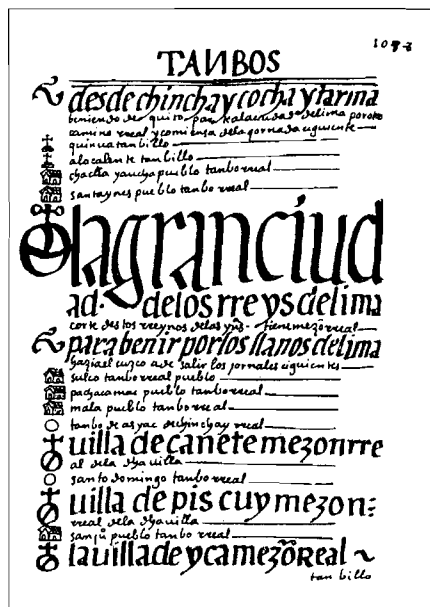 TANBOS
desde chinchaycocha y tarma
beniendo de quito para la ciudad de lima por otro
camino rreal y comiensa de la jornada ciguiente
quinua tanbillo
alocalente tanbillo
chaclla yaucha pueblo tanbo rreal
santa ynes pueblo tanbo rreal
la gran ciud
ad. de los rreys de lima
corte destos rreynos de las yns. tiene mezon rreal
para benir por los llanos de lima
hazia el cuzco a de salir los jornales ciguientes
sulco tanbo rreal pueblo
pachacamac pueblo tanbo rreal
mala pueblo tanbo rreal
tanbo de asyac de chinchay rreal
uilla de cañete mezon rre
al de la dha uilla
santo domingo tanbo rreal
uilla de piscuy mezon:
rreal de la dha uilla
san ju pueblo tanbo rreal
la uilla de yca mezõ Real ~
tanbillo